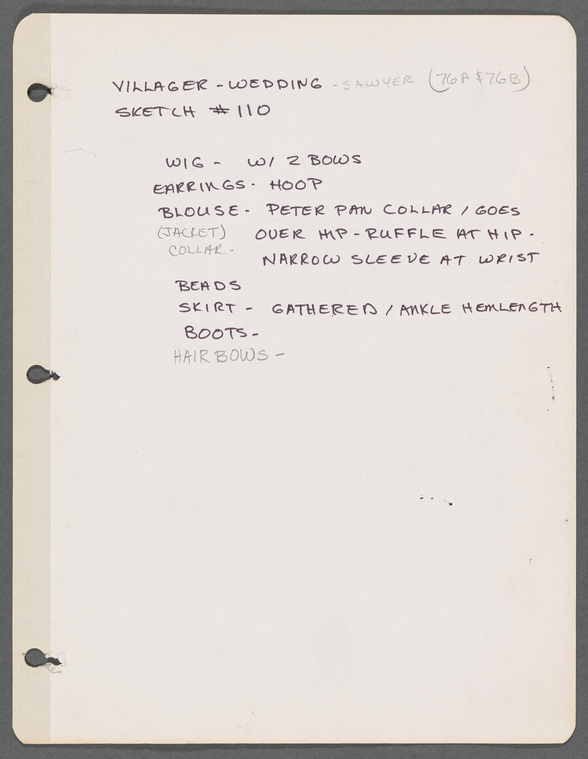 VILLAGER - WEDDING - SAWYER (76A & 76B)
SKETCH # 110
WIG - W/ 2 BOWS
EARRINGS - HOOP
BLOUSE - PETER PAN COLLAR / GOES
(JACKET) OVER HIP - RUFFLE AT HIP -
COLLAR - NARROW SLEEVE AT WRIST
BEADS
SKIRT - GATHERED / ANKLE HEMLENGTH
BOOTS -
HAIR BOWS -